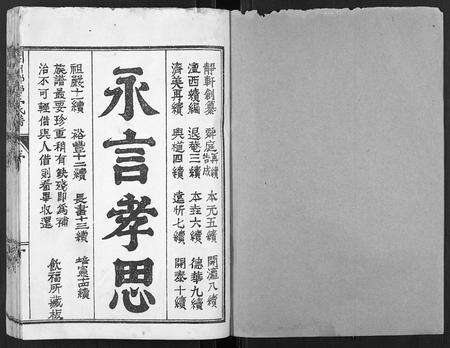 靜軒創纂 庭再續告成 本元五續 開瀛八續
澶西續編 退菴三續 本垚六續 德華九續
濟英再續 與樞四續 遠祈七續 開泰十續
永言孝思
祖嚴十一續 裕豐十二續 長書十三續 培寰十四續
族譜最要珍重稍有缺殘即爲補
治不可輕借與人借則看畢収還
飲福所藏板